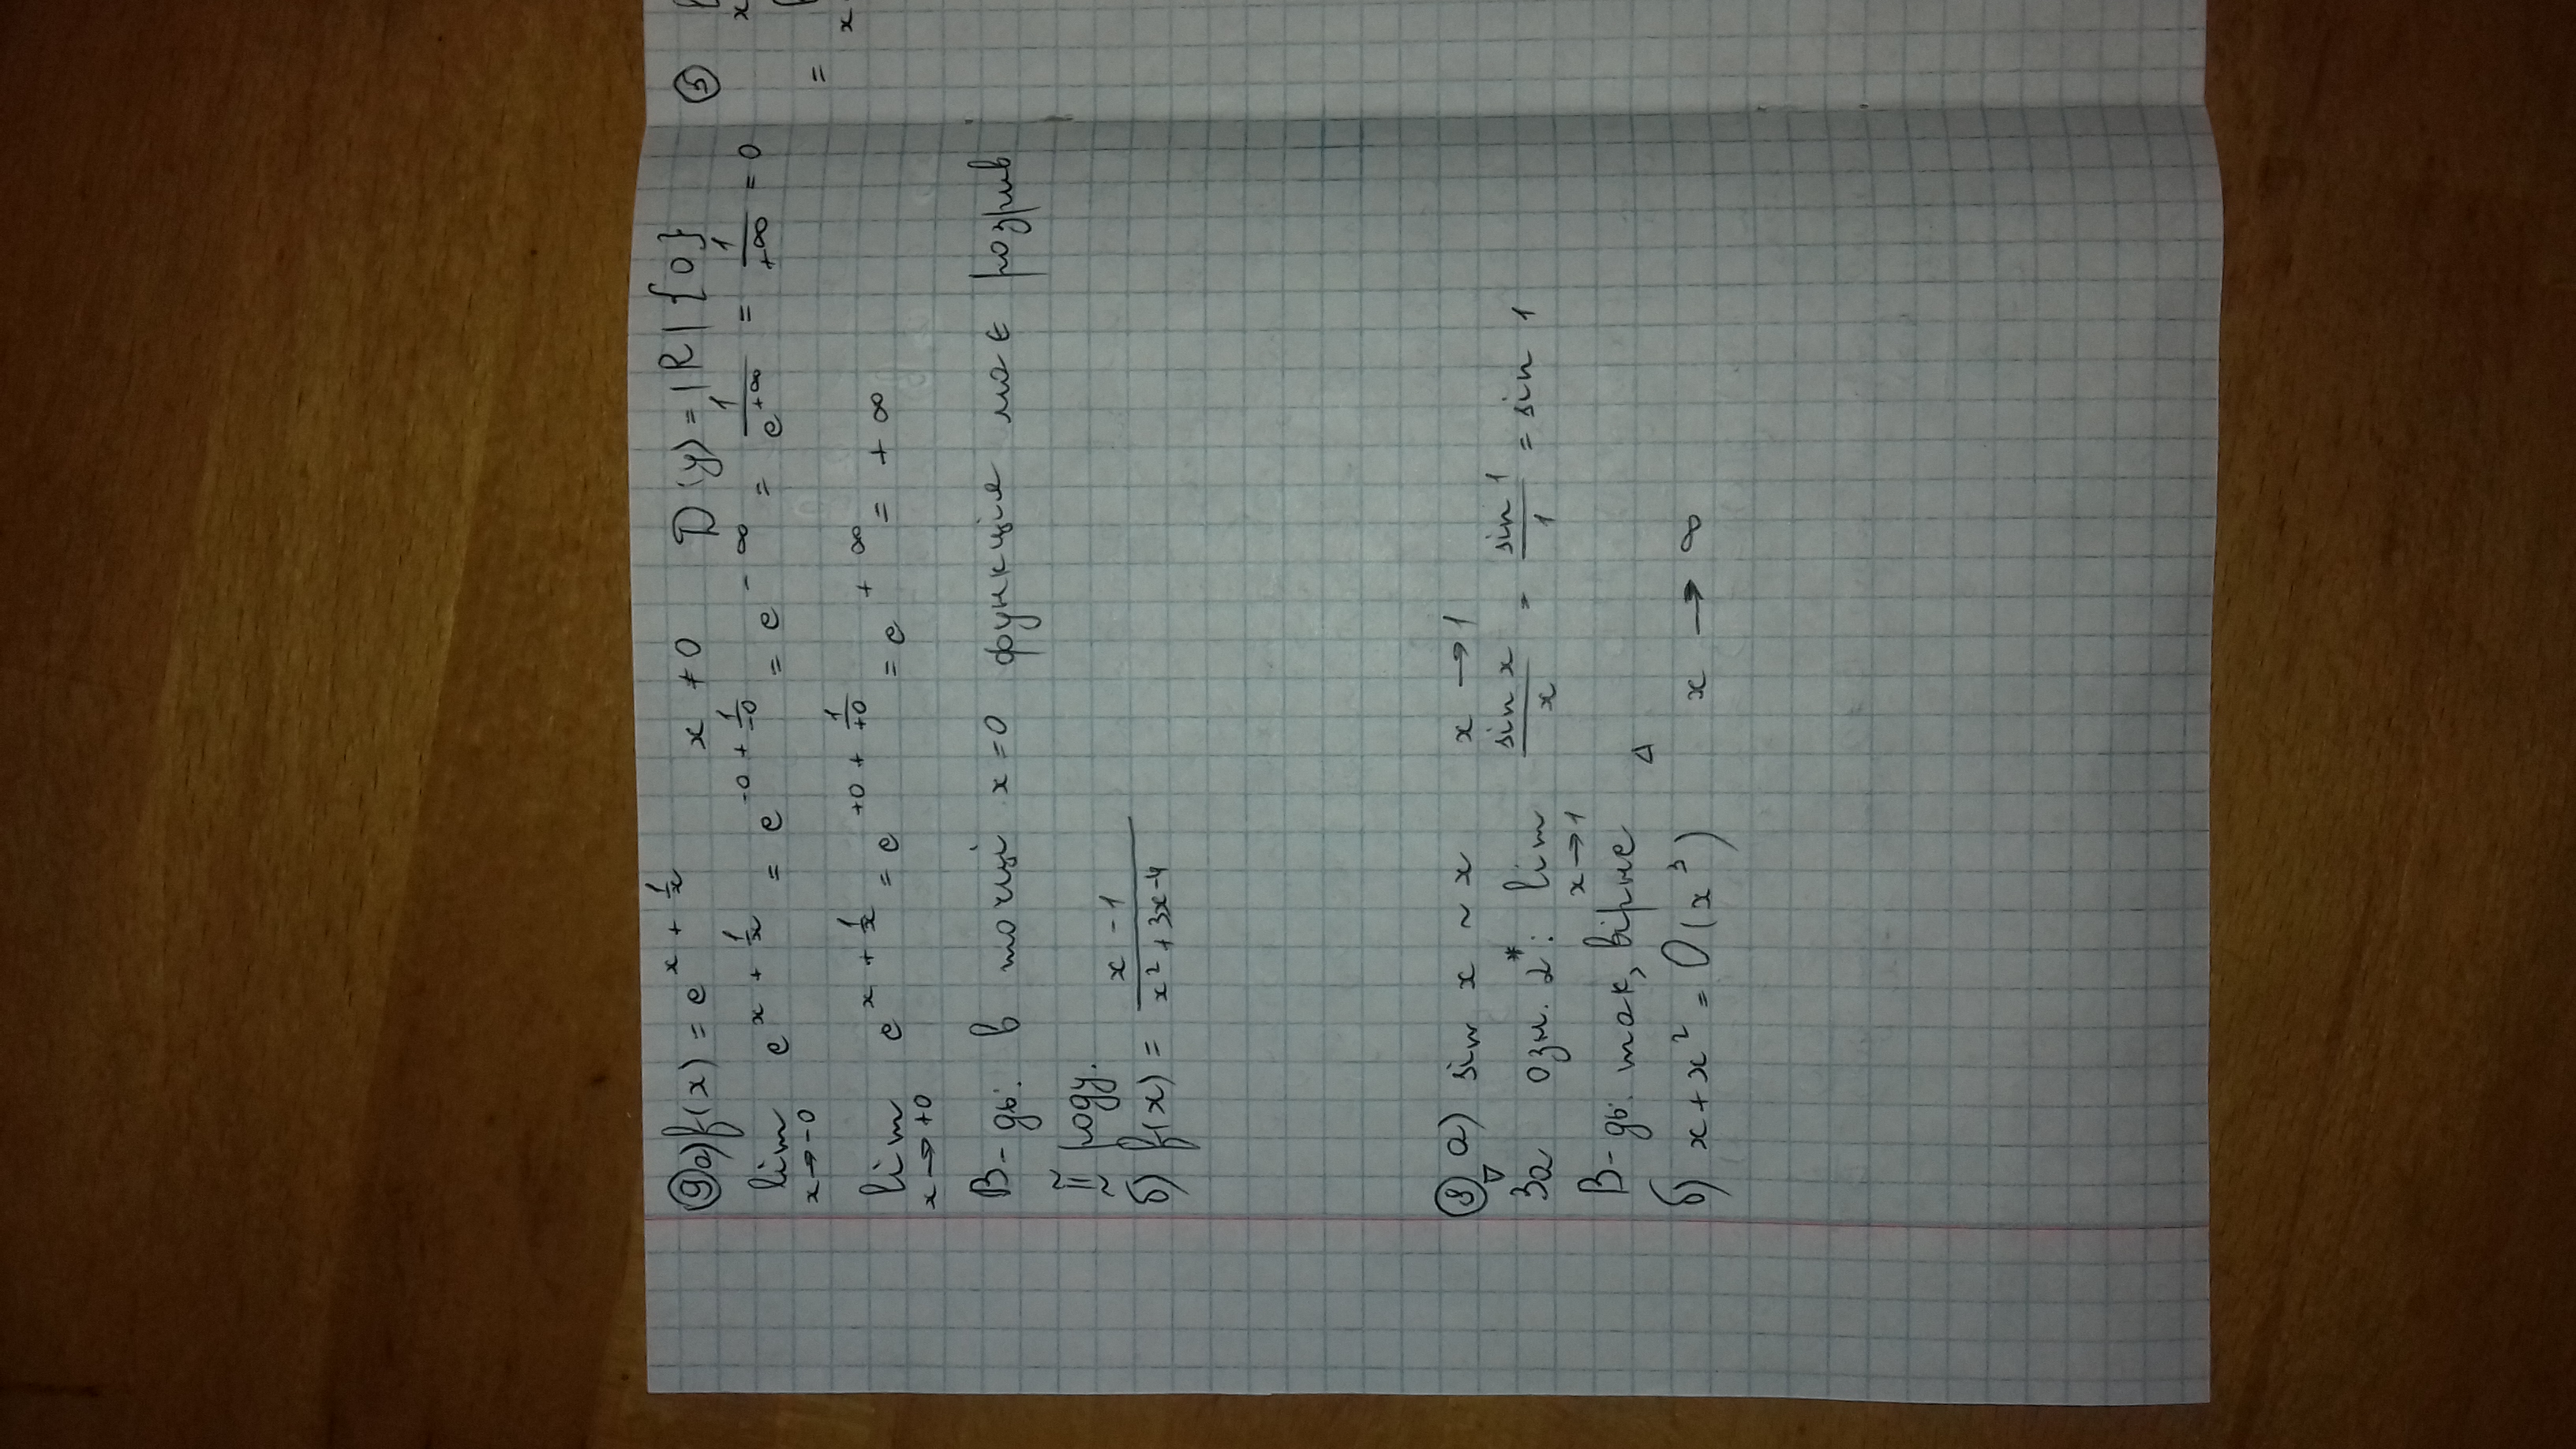 9 а) f(x) = e^{x + 1/x} x ≠ 0 D(y) = |R| {0}
lim x→-0 e^{x + 1/x} = e^{-0 + 1/-0} = e^{-∞} = 1/e^{+∞} = 1/+∞ = 0
lim x→+0 e^{x + 1/x} = e^{+0 + 1/+0} = e^{+∞} = + ∞
В-дь: в точці x=0 функція має розрив
II роду.
б) f(x) = (x - 1)/(x² + 3x - 4)
8 а) sin x ~ x x → 1
За озн. 2*: lim x→1 sin x/x = sin 1/1 = sin 1
В-дь: так, вірне
б) x + x² = O(x³) x → ∞
5
x
=
x